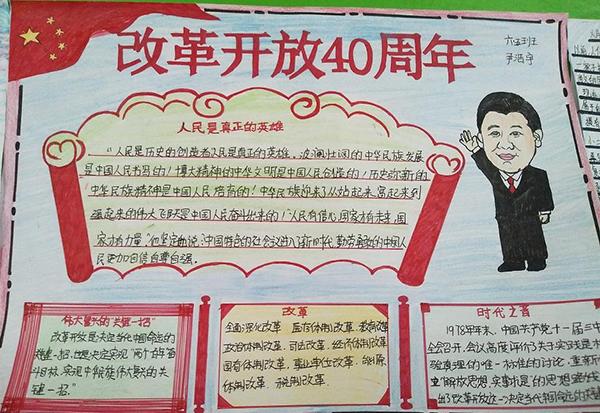 改革开放40周年
六年班
人民是真正的英雄
"人民是历史的创造者,人民是真正的英雄。波澜壮阔的中华民族发展
是中国人民书写的!博大精深的中华文明是中国人民创造的!历史弥新的
中华民族精神是中国人民培育的!中华民族迎来了从站起来、富起来到
强起来的伟大飞跃是中国人民奋斗出来的!"人民有信心,国家才有未来,国
家才有力量。"他坚定地说:中国特色的社会主义进入了新时代,勤劳勇敢的中国人
民更加自信自尊自强。
伟大复兴的"关键一招"
改革开放是决定当代中国命运的
关键一招,也是决定实现"两个百年"奋
斗目标,实现中华民族伟大复兴的关
键一招。"
改革
全面深化改革 医药体制改革 教育改革
政治体制改革,司法改革,经济体制改革
国有体制改革,事业单位改革,能源
体制改革,税制改革
时代之音
1978年年末,中国共产党十一届三中
全会召开,会议高度评价了关于实践是检
验真理的唯一标准的讨论,重新
立"解放思想,实事求是"的思想
出了改革开放这一决定当代中国命运的